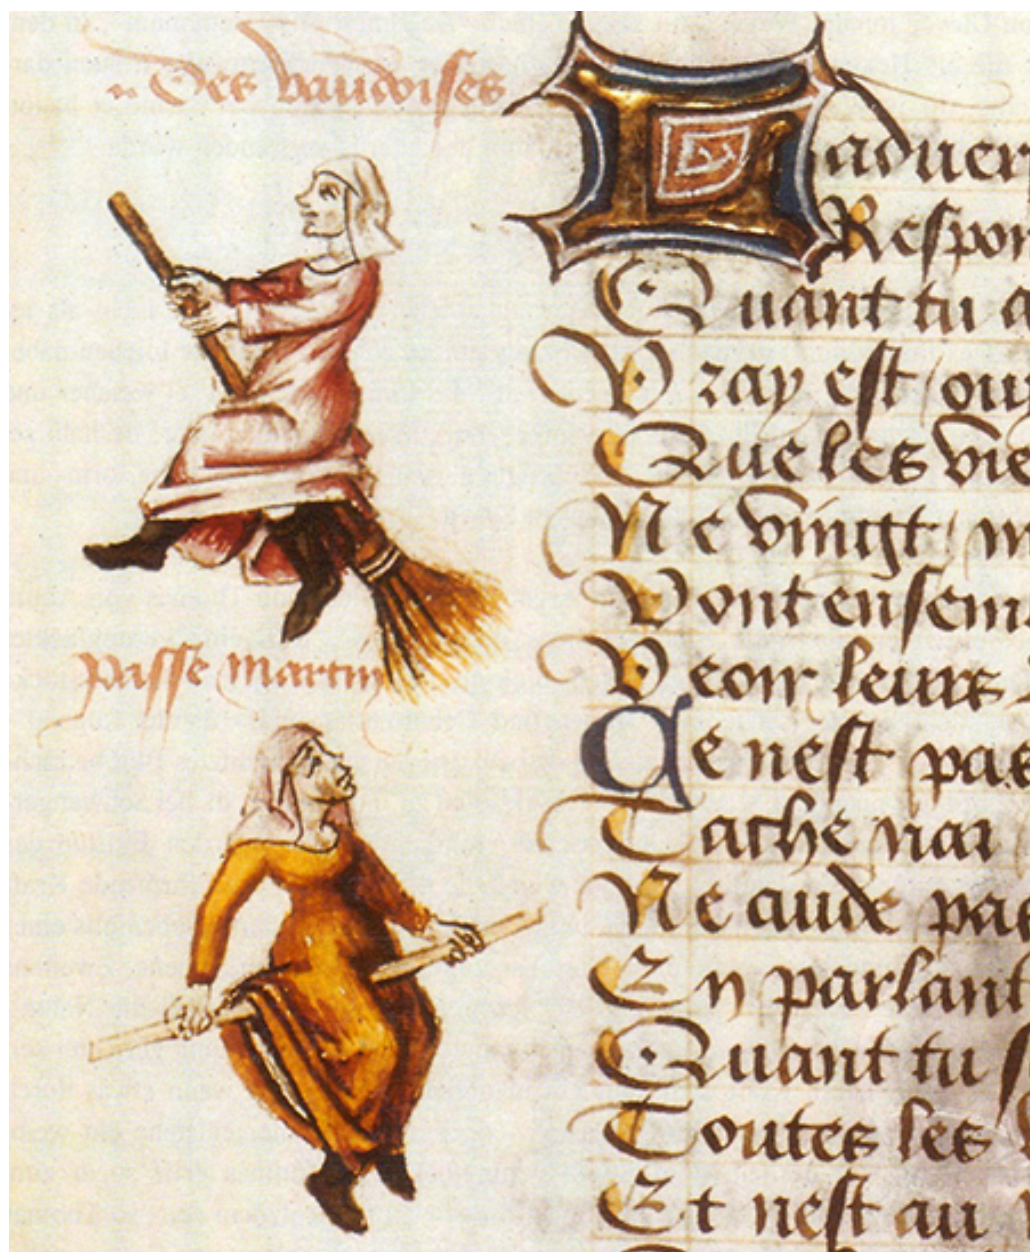 Des vaudoises
passe martin
Laduer
Respon
Quant tu a
Vray est ouy
Que les vie
Ne vingt m
Vont ensem
Veoir leurs
Ce nest pas
Tache nai
Ne aude pas
En parlant
Quant tu
Toutes les
Et nest au